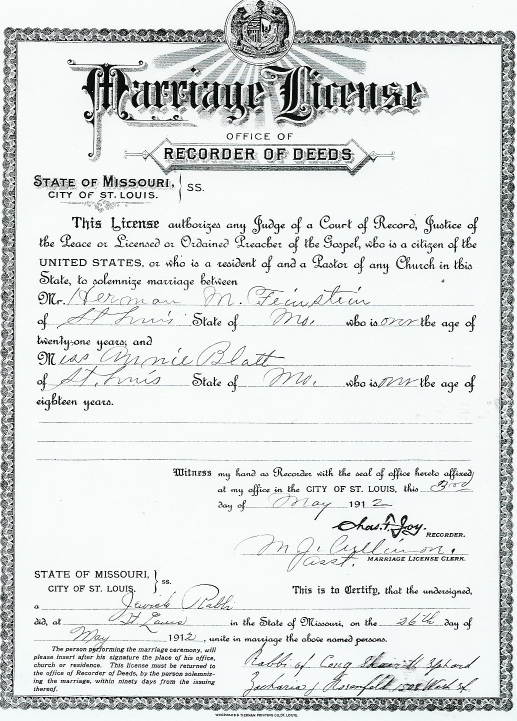 Marriage License
OFFICE OF
RECORDER OF DEEDS
STATE OF MISSOURI,
CITY OF ST. LOUIS. } SS.
This License authorizes any Judge of a Court of Record, Justice of
the Peace or Licensed or Ordained Preacher of the Gospel, who is a citizen of the
UNITED STATES, or who is a resident of and a Pastor of any Church in this
State, to solemnize marriage between
Mr. Herman M. Feinstein
of St Louis State of Mo. who is over the age of
twenty-one years, and
Miss Annie Blatt
of St. Louis State of Mo. who is over the age of
eighteen years.
Witness my hand as Recorder with the seal of office hereto affixed,
at my office in the CITY OF ST. LOUIS, this 3rd
day of May 1912
Chas. F. Joy.
RECORDER.
M. J. Cullinan.
Asst. MARRIAGE LICENSE CLERK.
STATE OF MISSOURI,
CITY OF ST. LOUIS. } ss.
This is to Certify, that the undersigned,
a Jewish Rabbi
did, at St Louis in the State of Missouri, on the 26th day of
May 1912, unite in marriage the above named persons.
The person performing the marriage ceremony, will
please insert after his signature the place of his office,
church or residence. This license must be returned to
the office of Recorder of Deeds, by the person solemniz-
ing the marriage, within ninety days from the issuing
thereof.
Rabbi of Cong
Zacharia J Rosenfeld